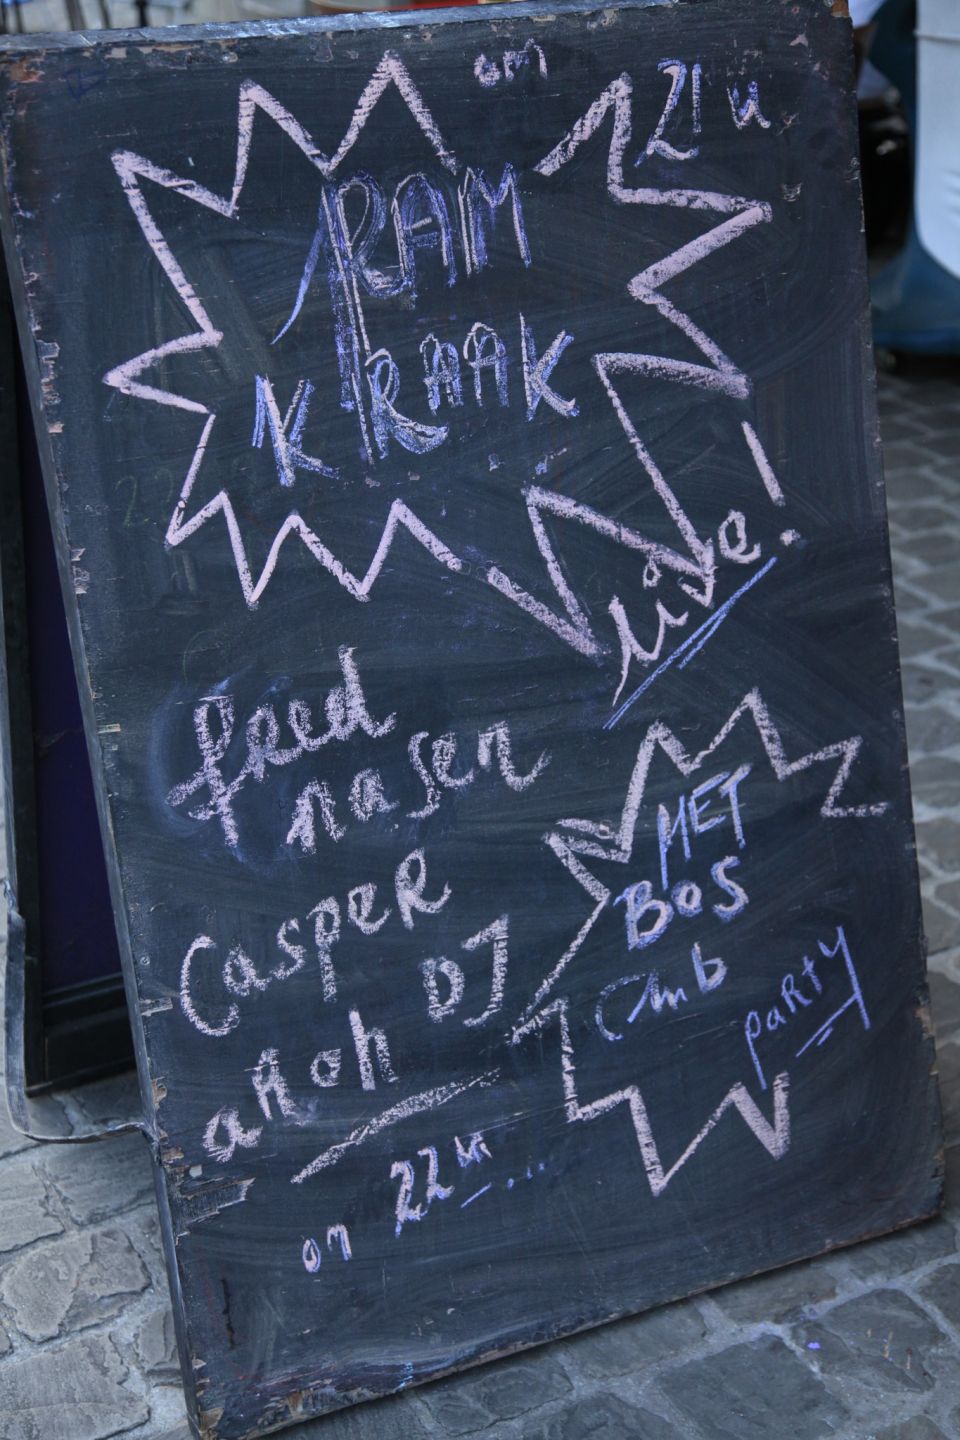 om 21 u
RAM
KRAAK
live!
feed
nasen
Casper
anoh DJ
om 22 u...
MET
BOS
Club
party